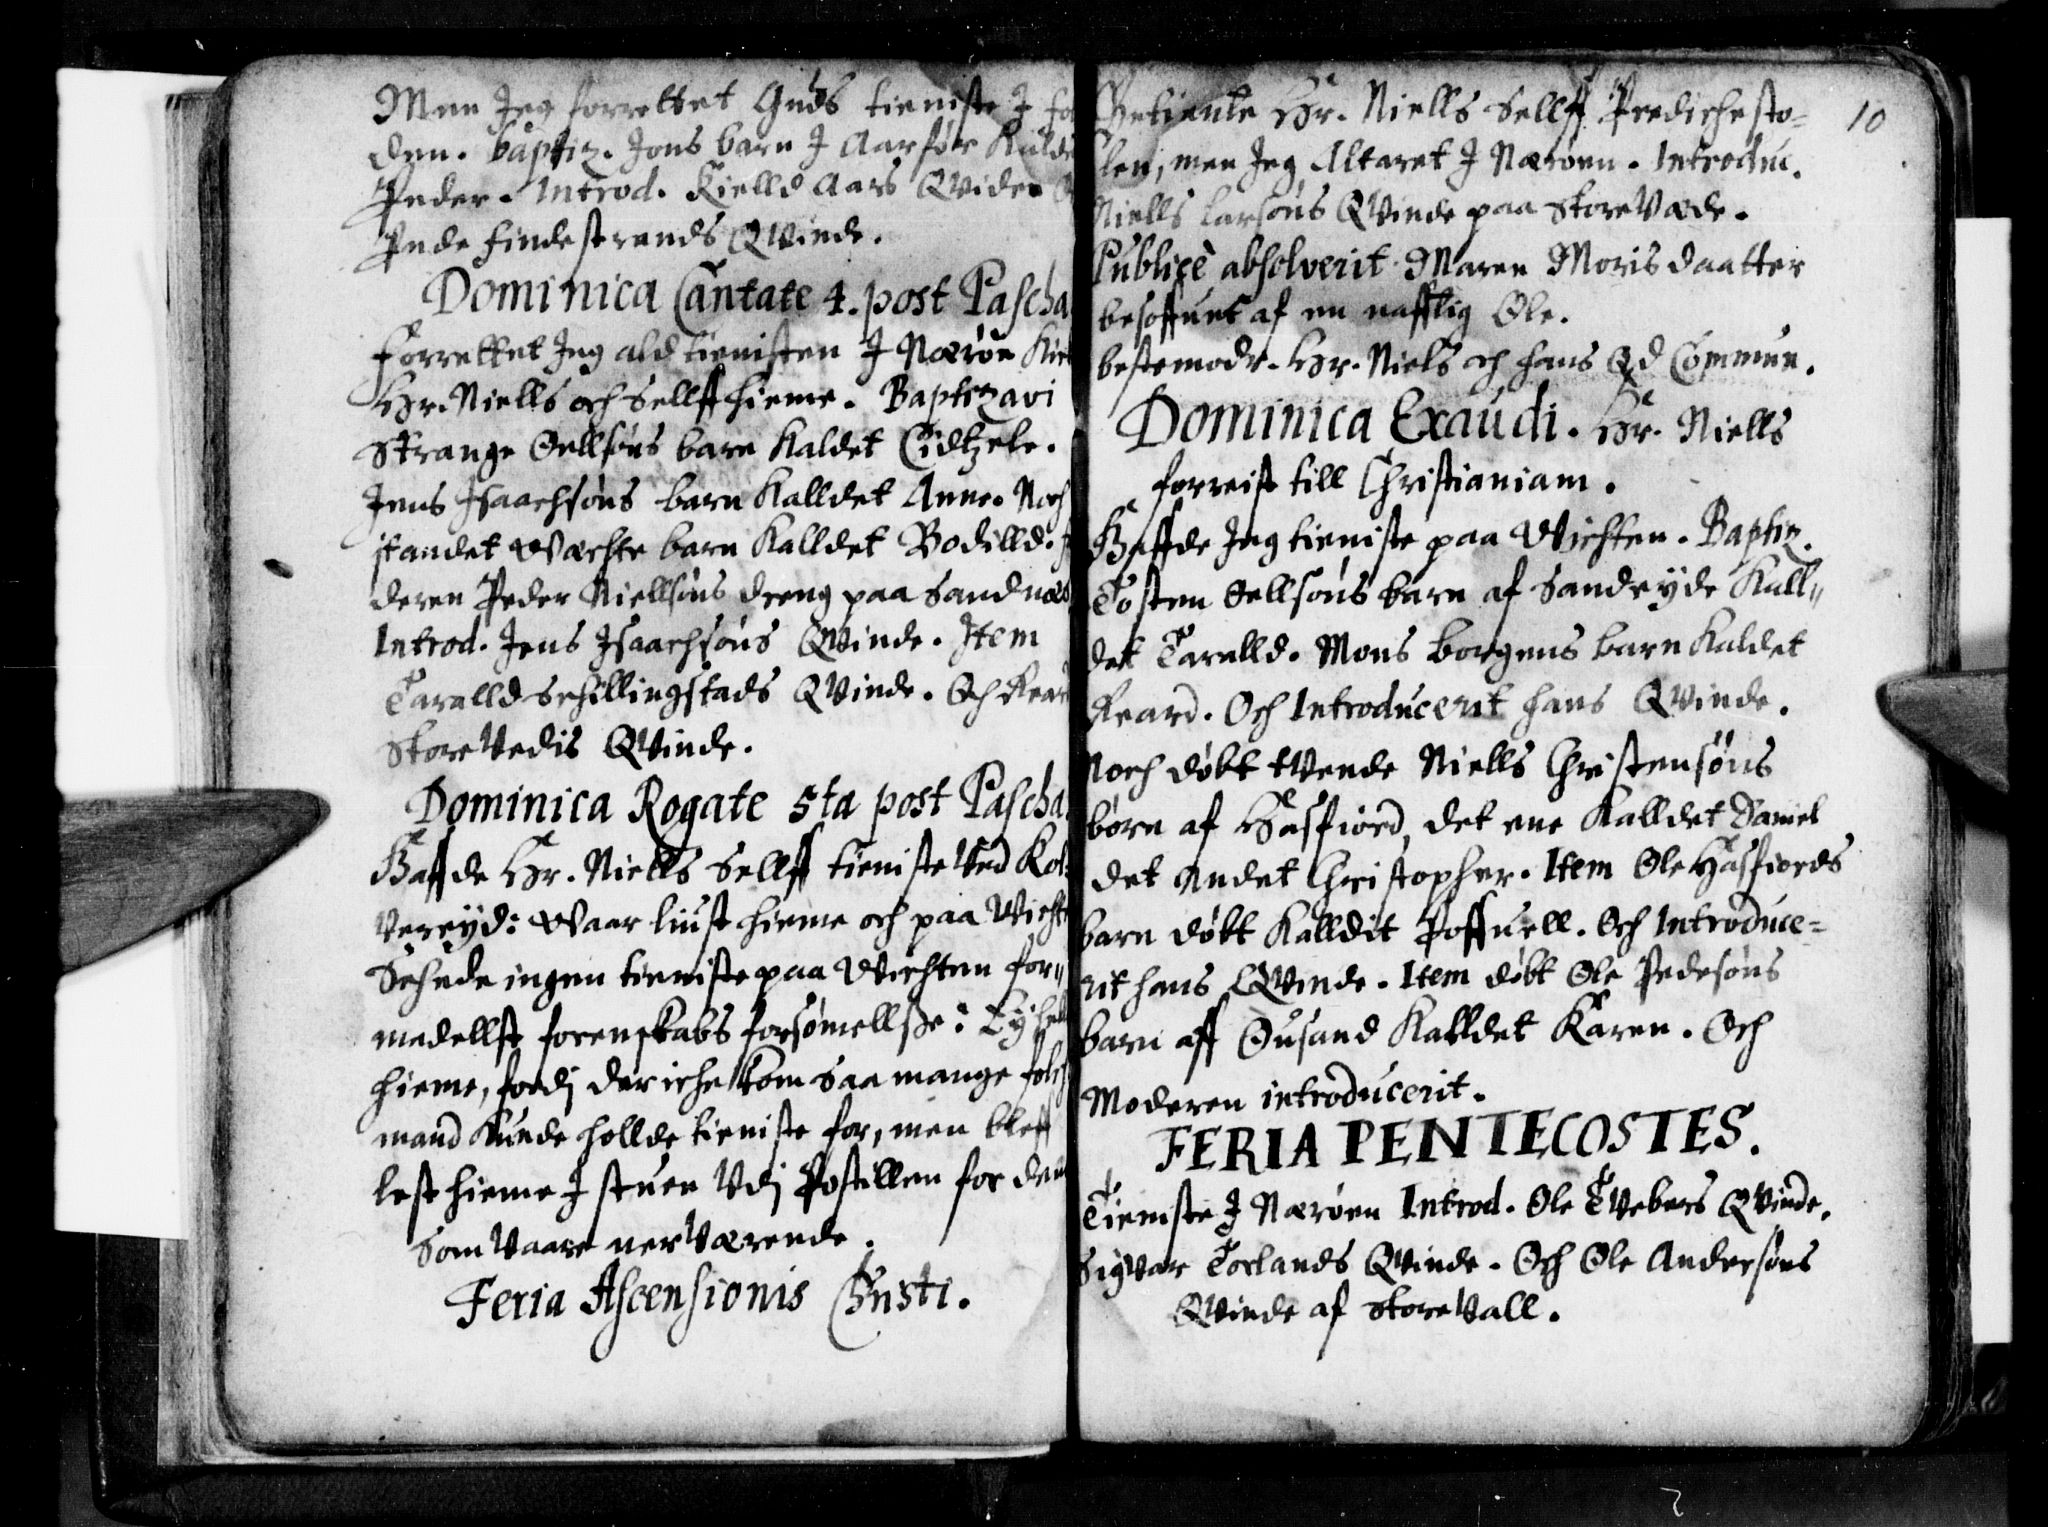 Men Jeg forrettet Guds tieniste J
den. baptiz. Jons barn J Aarsør
Peder. Introd. Kielld Aars Qvide
Pede Findestrands Qvinde.
Dominica Cantate 4. post Pascha
Forrettet Jeg ald tienisten J Nærøe
Hr. Niells och Sellff hieme. Baptizavi
Strange Sellsøns barn Kaldet Cidtzele.
Jens Isaachsøns barn Kalldet Anne. Noch
standet Wachte barn Kalldet Bodilld.
deren Peder Niellsøns dreng paa Sandnæs
Introd. Jens Isaachsøns Qvinde. Item
Taralld Schillingstads Qvinde. Och
StoreVedis Qvinde.
Dominica Rogate 5ta post Pascha.
Haffde Hr. Niells Sellff tieniste Ved
Vereyd: Waar liust hieme och paa
Schede ingen tieniste paa Wichten for„
medellst forenskabs forsømellsße:
hieme, fordj der iche kom saa mange folch
mand Kunde hollde tieniste for, men bleff
lest hieme J stuen Udj Postillen for dem
Som Vaare nerVærende.
Feria Ascensionis Christi.
10
Betiente Hr. Niells Sellff Predichesto-
len, men Jeg Altaret J Nærøen. Introduc.
Niells Larsøns Qvinde paa StoreVæde.
Publicè absolverit Maren Morisdaatter
besoffuet af en nafflig Ole.
bestemodr. Hr. Niels och hans Qd Commun.
Dominica Exaudi. Hr. Niells
forreist till Christianiam.
Haffde Jeg tieniste paa Wichten. Baptiz.
Tosten Sellsøns barn af Sandryde Kall„
det Taralld. Mons borgens barn Kaldet
Sfeard. Och Introducerit hans Qvinde.
Noch døbt tVende Niells Christensøns
børn af Hasfiord, det ene Kalldet Daniel
det Andet Christopher. Item Ole Hasfiords
barn døbt Kalldit Poffuell. Och Introduce-
rit hans Qvinde. Item døbt Ole Pedesøns
barn aff Gusand Kalldet Karen. Och
Moderen introducerit.
FERIA PENTECOSTES.
Tieniste J Nærøen Introd. Ole TVebers Qvinde,
SigVar Torlands Qvinde. Och Ole Andersøns
Qvinde af StoreVall.